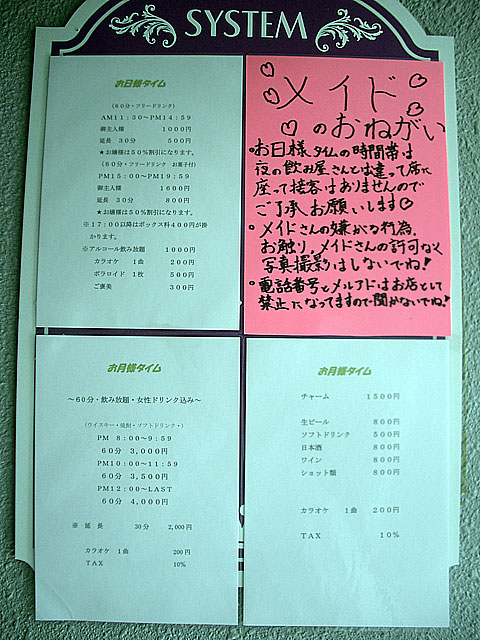 SYSTEM
お日様タイム
(60分・フリードリンク)
AM11:30〜PM14:59
御主人様 1000円
延長 30分 500円
★お嬢様は50%割引になります。
(60分・フリードリンク お菓子付)
PM15:00〜PM19:59
御主人様 1600円
延長 30分 800円
★お嬢様は50%割引になります。
※17:00以降はボックス料400円が掛
かります。
※アルコール飲み放題 1000円
カラオケ 1曲 200円
ポラロイド 1枚 500円
ご褒美 300円
メイド
のおねがい
・お日様タイムの時間帯は
夜の飲み屋さんとは違って席に
座って接客はありませんので
ご了承お願いします♡
・メイドさんの嫌がる行為、
お触り、メイドさんの許可なく
写真撮影はしないでね!
・電話番号とメルアドはお店として
禁止になってますので聞かないでね!
お月様タイム
〜60分・飲み放題・女性ドリンク込み〜
(ウイスキー・焼酎・ソフトドリンク・)
PM 8:00〜9:59
60分 3,000円
PM10:00〜11:59
60分 3,500円
PM12:00〜LAST
60分 4,000円
※ 延長 30分 2,000円
カラオケ 1曲 200円
TAX 10%
お月様タイム
チャーム 1500円
生ビール 800円
ソフトドリンク 500円
日本酒 800円
ワイン 800円
ショット類 800円
カラオケ 1曲 200円
TAX 10%